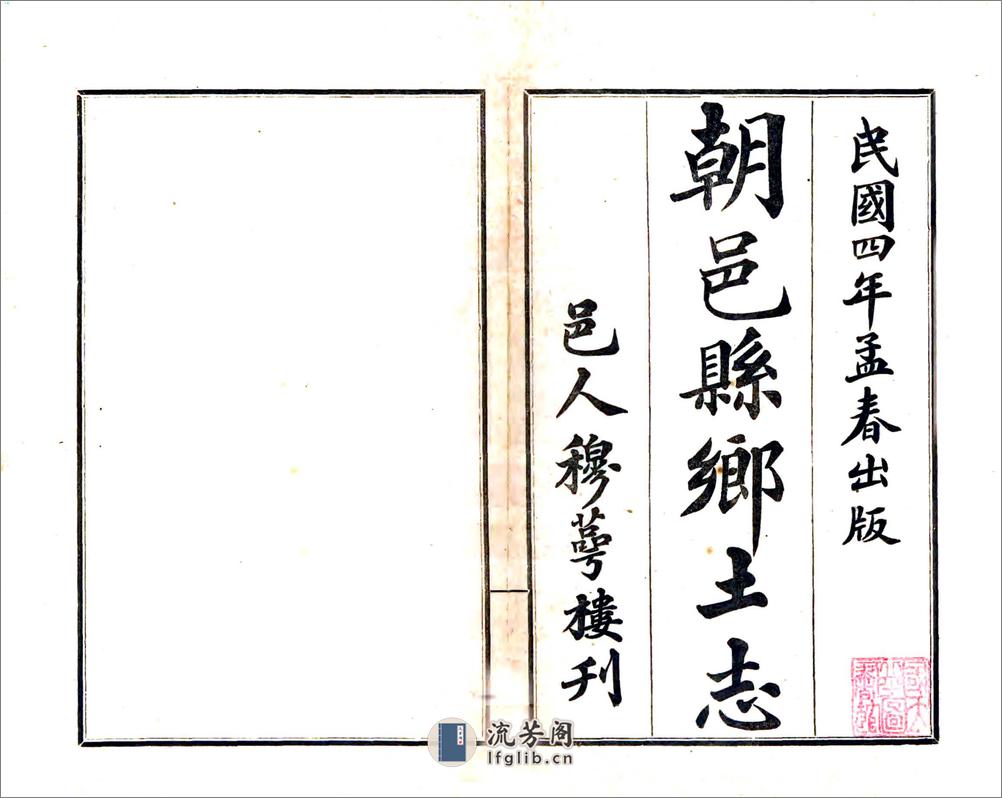 民國四年孟春出版
朝邑縣鄉土志
邑人穆萼樓刋
流芳阁
lfglib.cn